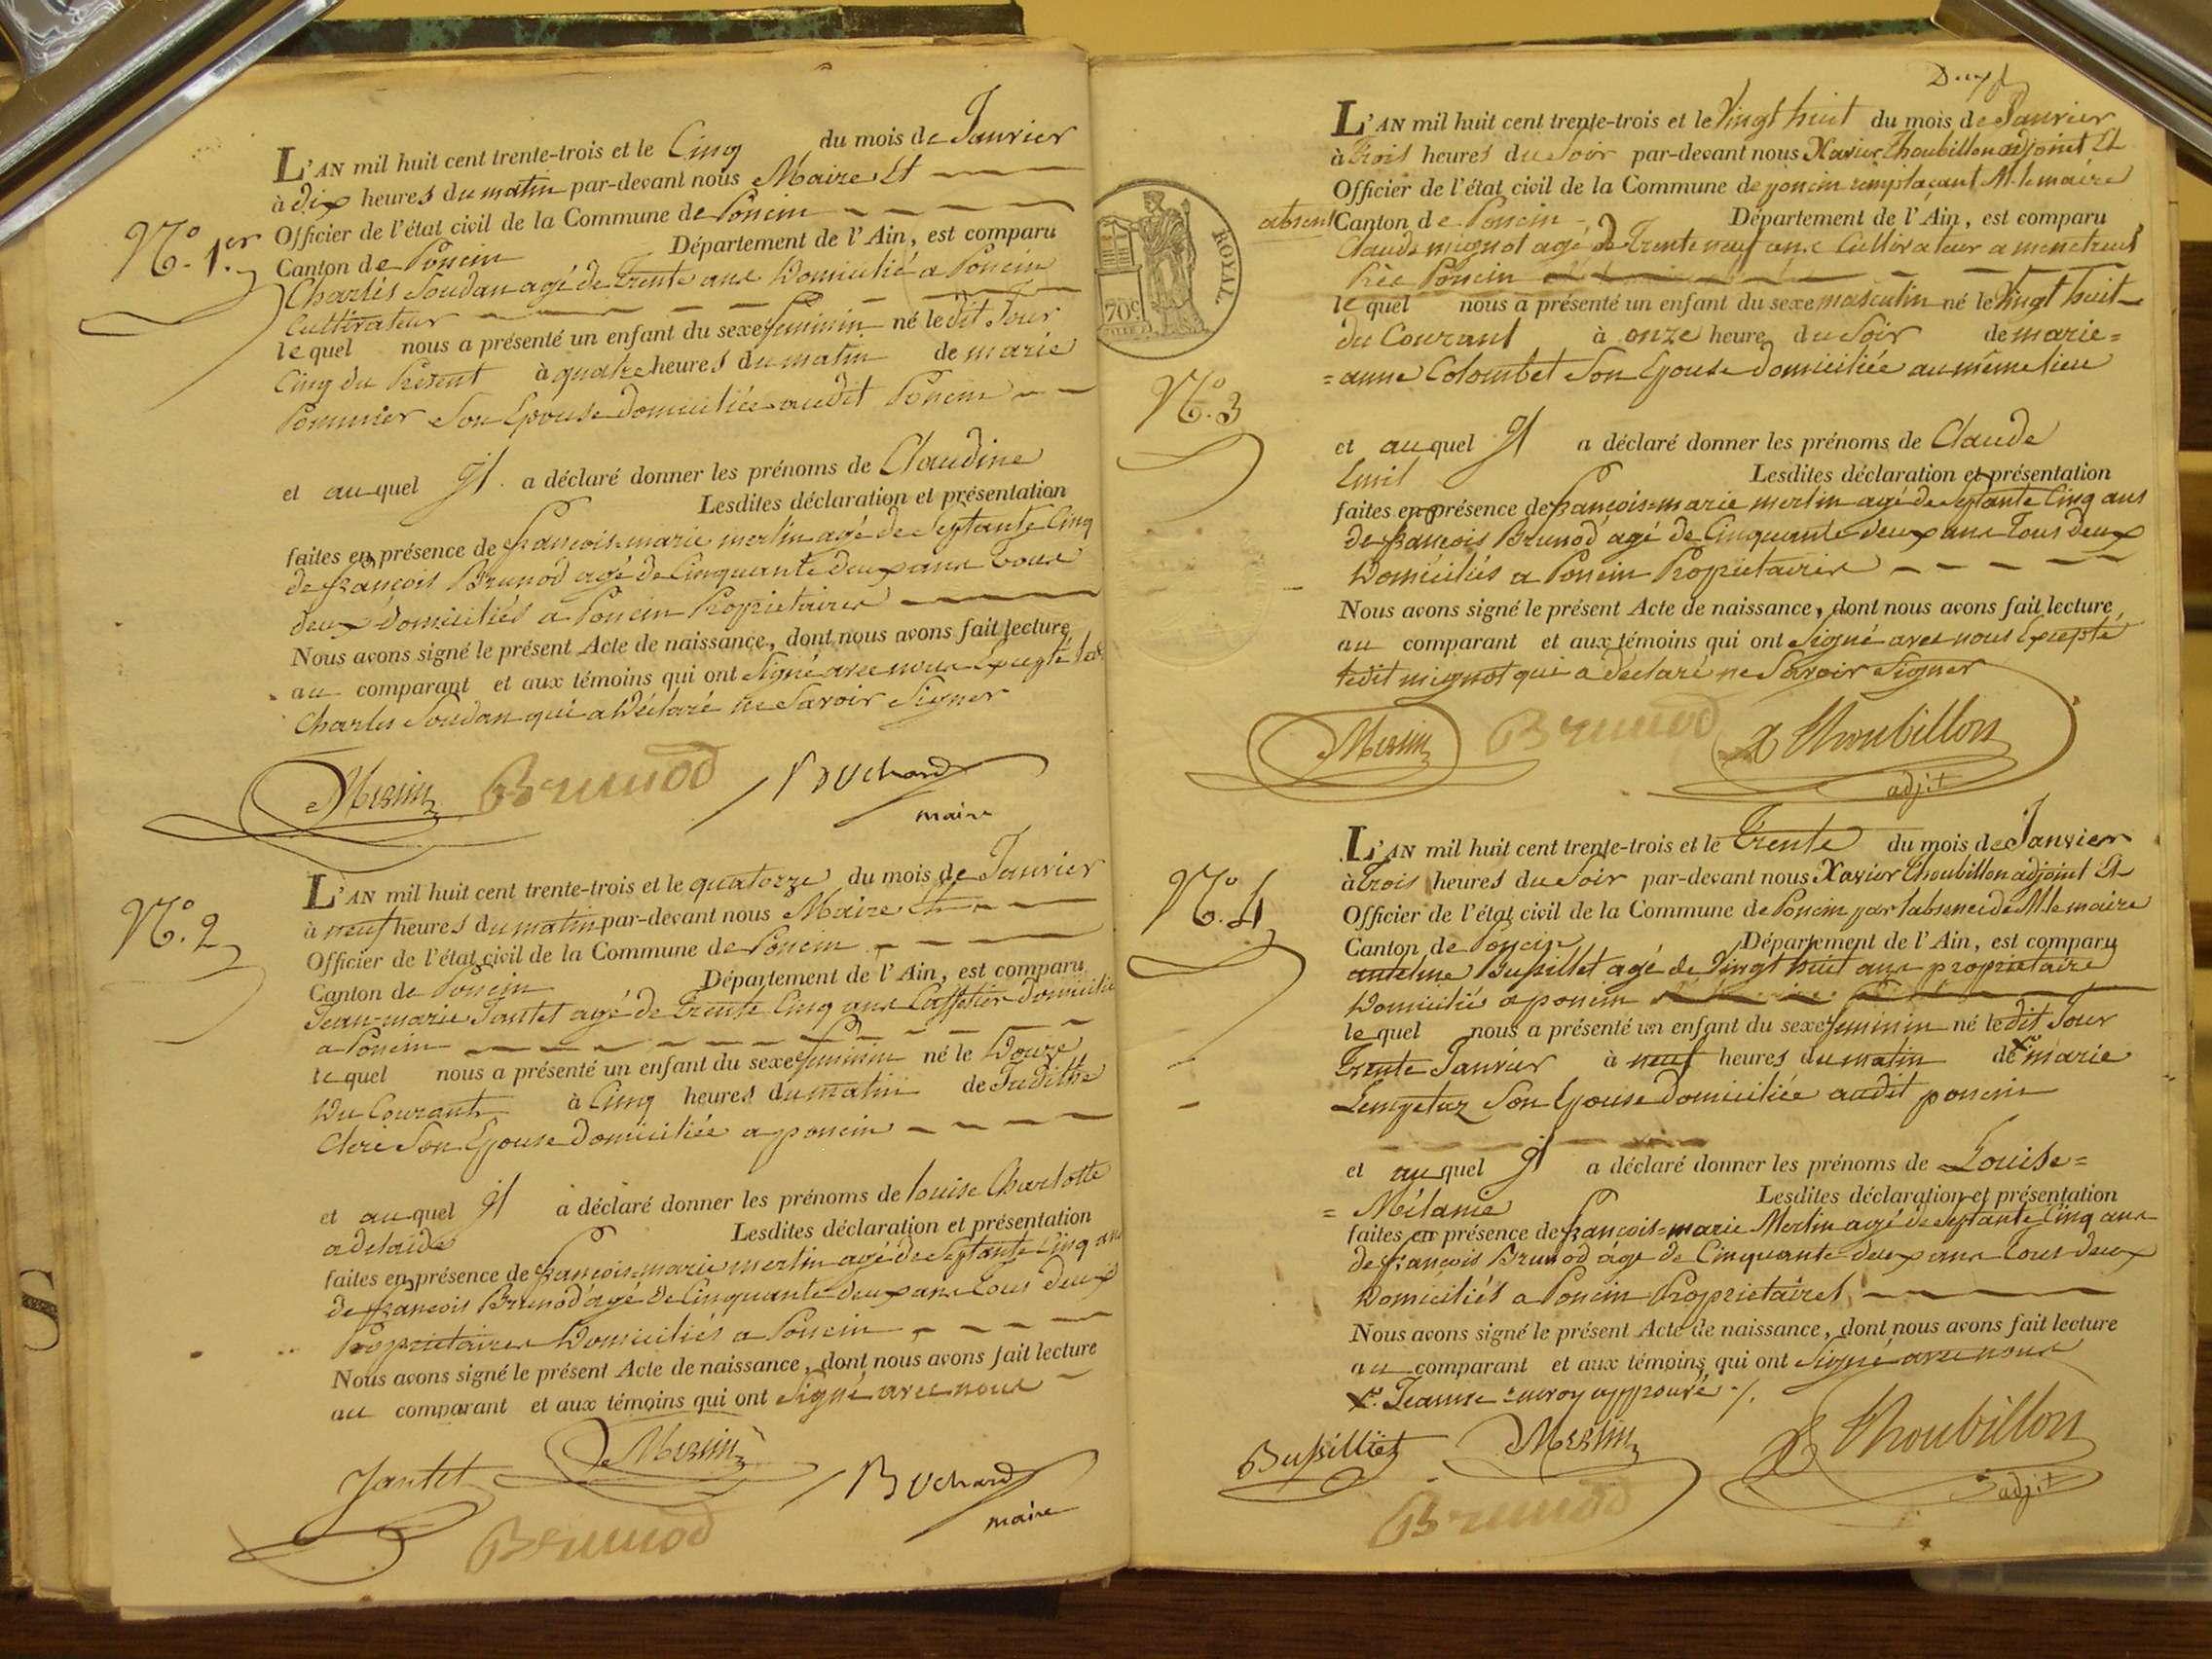 N.o 1.er
L'AN mil huit cent trente-trois et le Cinq du mois de Janvier
à dix heures du matin par-devant nous Maire Et
Officier de l'état civil de la Commune de Poncin
Canton de Poncin Département de l'Ain, est comparu
Charles Soudan agé de Trente ans Domicilié a Poncin
Cultivateur
lequel nous a présenté un enfant du sexe feminin né le dit Jour
Cinq du Présent à quatre heures du matin de marie
Pommier Son Epouse domiciliée audit Poncin
et auquel Il a déclaré donner les prénoms de Claudine
Lesdites déclaration et présentation
faites en présence de françois-marie merlin agé de Septante Cinq
de françois Brunod agé de Cinquante deux ans tous
deux domiciliés a Poncin Propriétaires
Nous avons signé le présent Acte de naissance, dont nous avons fait lecture
au comparant et aux témoins qui ont Signé avec nous Excepté
Charles Soudan qui a Déclaré ne Savoir Signer
Merlin Brunod Buchard
maire
N.o 2
L'AN mil huit cent trente-trois et le quatorze du mois de Janvier
à neuf heures du matin par-devant nous Maire Et
Officier de l'état civil de la Commune de Poncin
Canton de Poncin Département de l'Ain, est comparu
Jean-marie Jantet agé de Trente Cinq ans Caffetier domicilié
a Poncin
lequel nous a présenté un enfant du sexe feminin né le Douze
Du Courant à Cinq heures du matin de Judithe
Clerc Son Epouse Domiciliée a poncin
et auquel Il a déclaré donner les prénoms de louise Charlotte
adelaide Lesdites déclaration et présentation
faites en présence de françois-marie merlin agé de Septante Cinq ans
de françois Brunod agé de Cinquante deux ans tous deux
Propriétaires Domiciliés a Poncin
Nous avons signé le présent Acte de naissance, dont nous avons fait lecture
au comparant et aux témoins qui ont Signé avec nous
Jantet Merlin Buchard
maire
Brunod
ROYAL.
70c
N.o 3
L'AN mil huit cent trente-trois et le Vingt huit du mois de Janvier
à Trois heures du Soir par-devant nous Xavier Thoubillon adjoint Et
Officier de l'état civil de la Commune de poncin remplaçant M. le maire
absent Canton de Poncin Département de l'Ain, est comparu
Claude mignot agé de Trente neuf ans Cultivateur a menetruel
Rèe Poncin
lequel nous a présenté un enfant du sexe masculin né le Vingt huit
du Courant à onze heure du Soir de marie=
=anne Colombet Son Epouse domiciliée au même lieu
et auquel Il a déclaré donner les prénoms de Claude
Emil Lesdites déclaration et présentation
faites en présence de françois=marie merlin agé de Septante Cinq ans
de françois Brunod agé de Cinquante deux ans tous deux
Domiciliés a Poncin Propriétaires
Nous avons signé le présent Acte de naissance, dont nous avons fait lecture
au comparant et aux témoins qui ont Signé avec nous Excepté
ledit mignot qui a déclaré ne Savoir Signer
Merlin Brunod X Thoubillon
adjt
N.o 4
L'AN mil huit cent trente-trois et le Trente du mois de Janvier
à Trois heures du Soir par-devant nous Xavier Thoubillon adjoint Et
Officier de l'état civil de la Commune de Poncin par l'absence de M. le maire
Canton de Poncin Département de l'Ain, est comparu
antelme Bussillet agé de Vingt huit ans propriétaire
Domicilié a poncin
lequel nous a présenté un enfant du sexe feminin né le dit Jour
Trente Janvier à neuf heures du matin de marie
Son Epouse Domiciliée audit poncin
et auquel Il a déclaré donner les prénoms de Louise=
=Mélanie Lesdites déclaration et présentation
faites en présence de françois=marie Merlin agé de Septante Cinq ans
de françois Brunod agé de Cinquante deux ans tous deux
Domiciliés a Poncin Propriétaires
Nous avons signé le présent Acte de naissance, dont nous avons fait lecture
au comparant et aux témoins qui ont Signé avec nous
Jeanne approuvé
Bussilliet Merlin X Thoubillon
adjt
Brunod